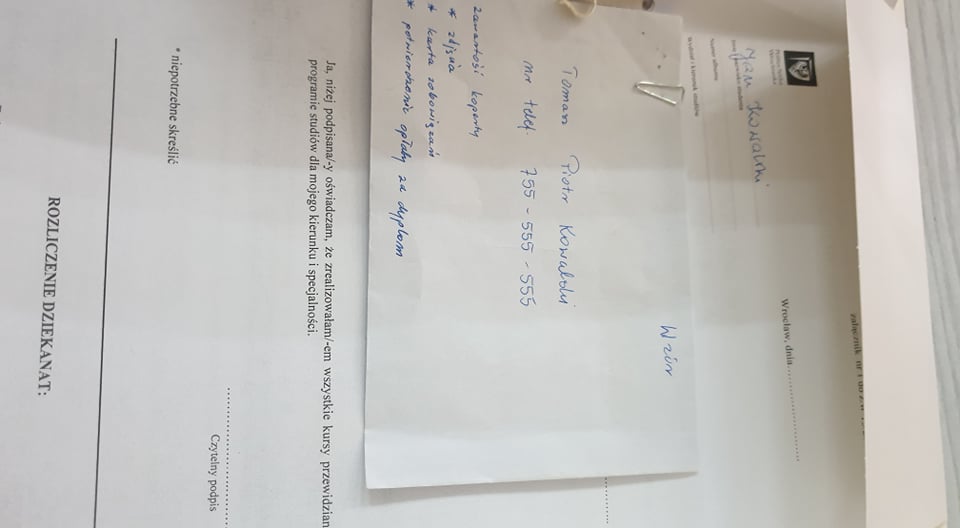 załącznik nr 1 do
Wrocław, dnia
Politechnika
Wrocławska
Jan Kowalski
Imię i nazwisko studenta
Numer albumu
Wydział i kierunek studiów
Wzór
Tomasz Piotr Kowalski
nr telef. 755-555-555
zawartość koperty
* zdjęcia
* karta zobowiązań
* potwierdzenie opłaty za dyplom
Ja, niżej podpisana/-y oświadczam, że zrealizowałam/-em wszystkie kursy przewidzian
programie studiów dla mojego kierunku i specjalności.
Czytelny podpis
* niepotrzebne skreślić
ROZLICZENIE DZIEKANAT: